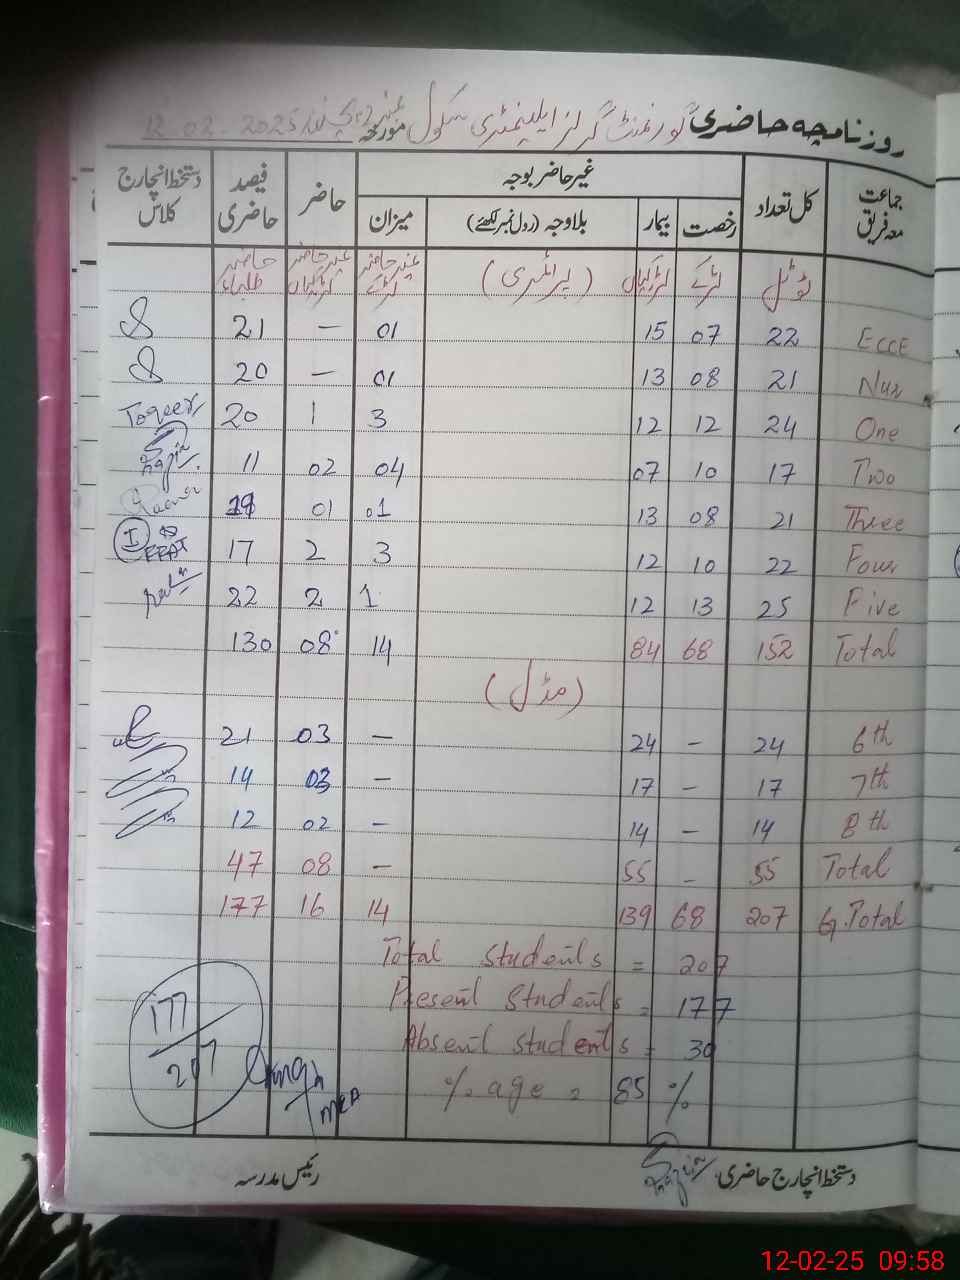 روزنامچہ حاضری گورنمنٹ گرلز ایلیمنٹری سکول مورخہ 12-02-2025
جماعت معہ فریق کل تعداد غیر حاضر بوجہ حاضر فیصد حاضری دستخط انچارج کلاس
رخصت بیمار بلاوجہ (رول نمبر لکھئے) میزان
ٹوٹل لڑکے لڑکیاں (پرائمری) غیر حاضر لڑکے غیر حاضر لڑکیاں حاضر طلباء
ECCE 22 07 15 01 – 21
Nur 21 08 13 01 – 20
One 24 12 12 3 1 20 Toqeer
Two 17 10 07 04 02 11
Three 21 08 13 01 01 19
Four 22 10 12 3 2 17
Five 25 13 12 1 2 22
Total 152 68 84 14 08 130
(مڈل)
6th 24 – 24 – 03 21
7th 17 – 17 – 03 14
8th 14 – 14 – 02 12
Total 55 – 55 – 08 47
G.Total 207 68 139 14 16 177
Total Students = 207
Present Students = 177
Absent Students = 30
%age = 85 %
177
207
MEA
دستخط انچارج حاضری رئیس مدرسہ
12-02-25 09:58